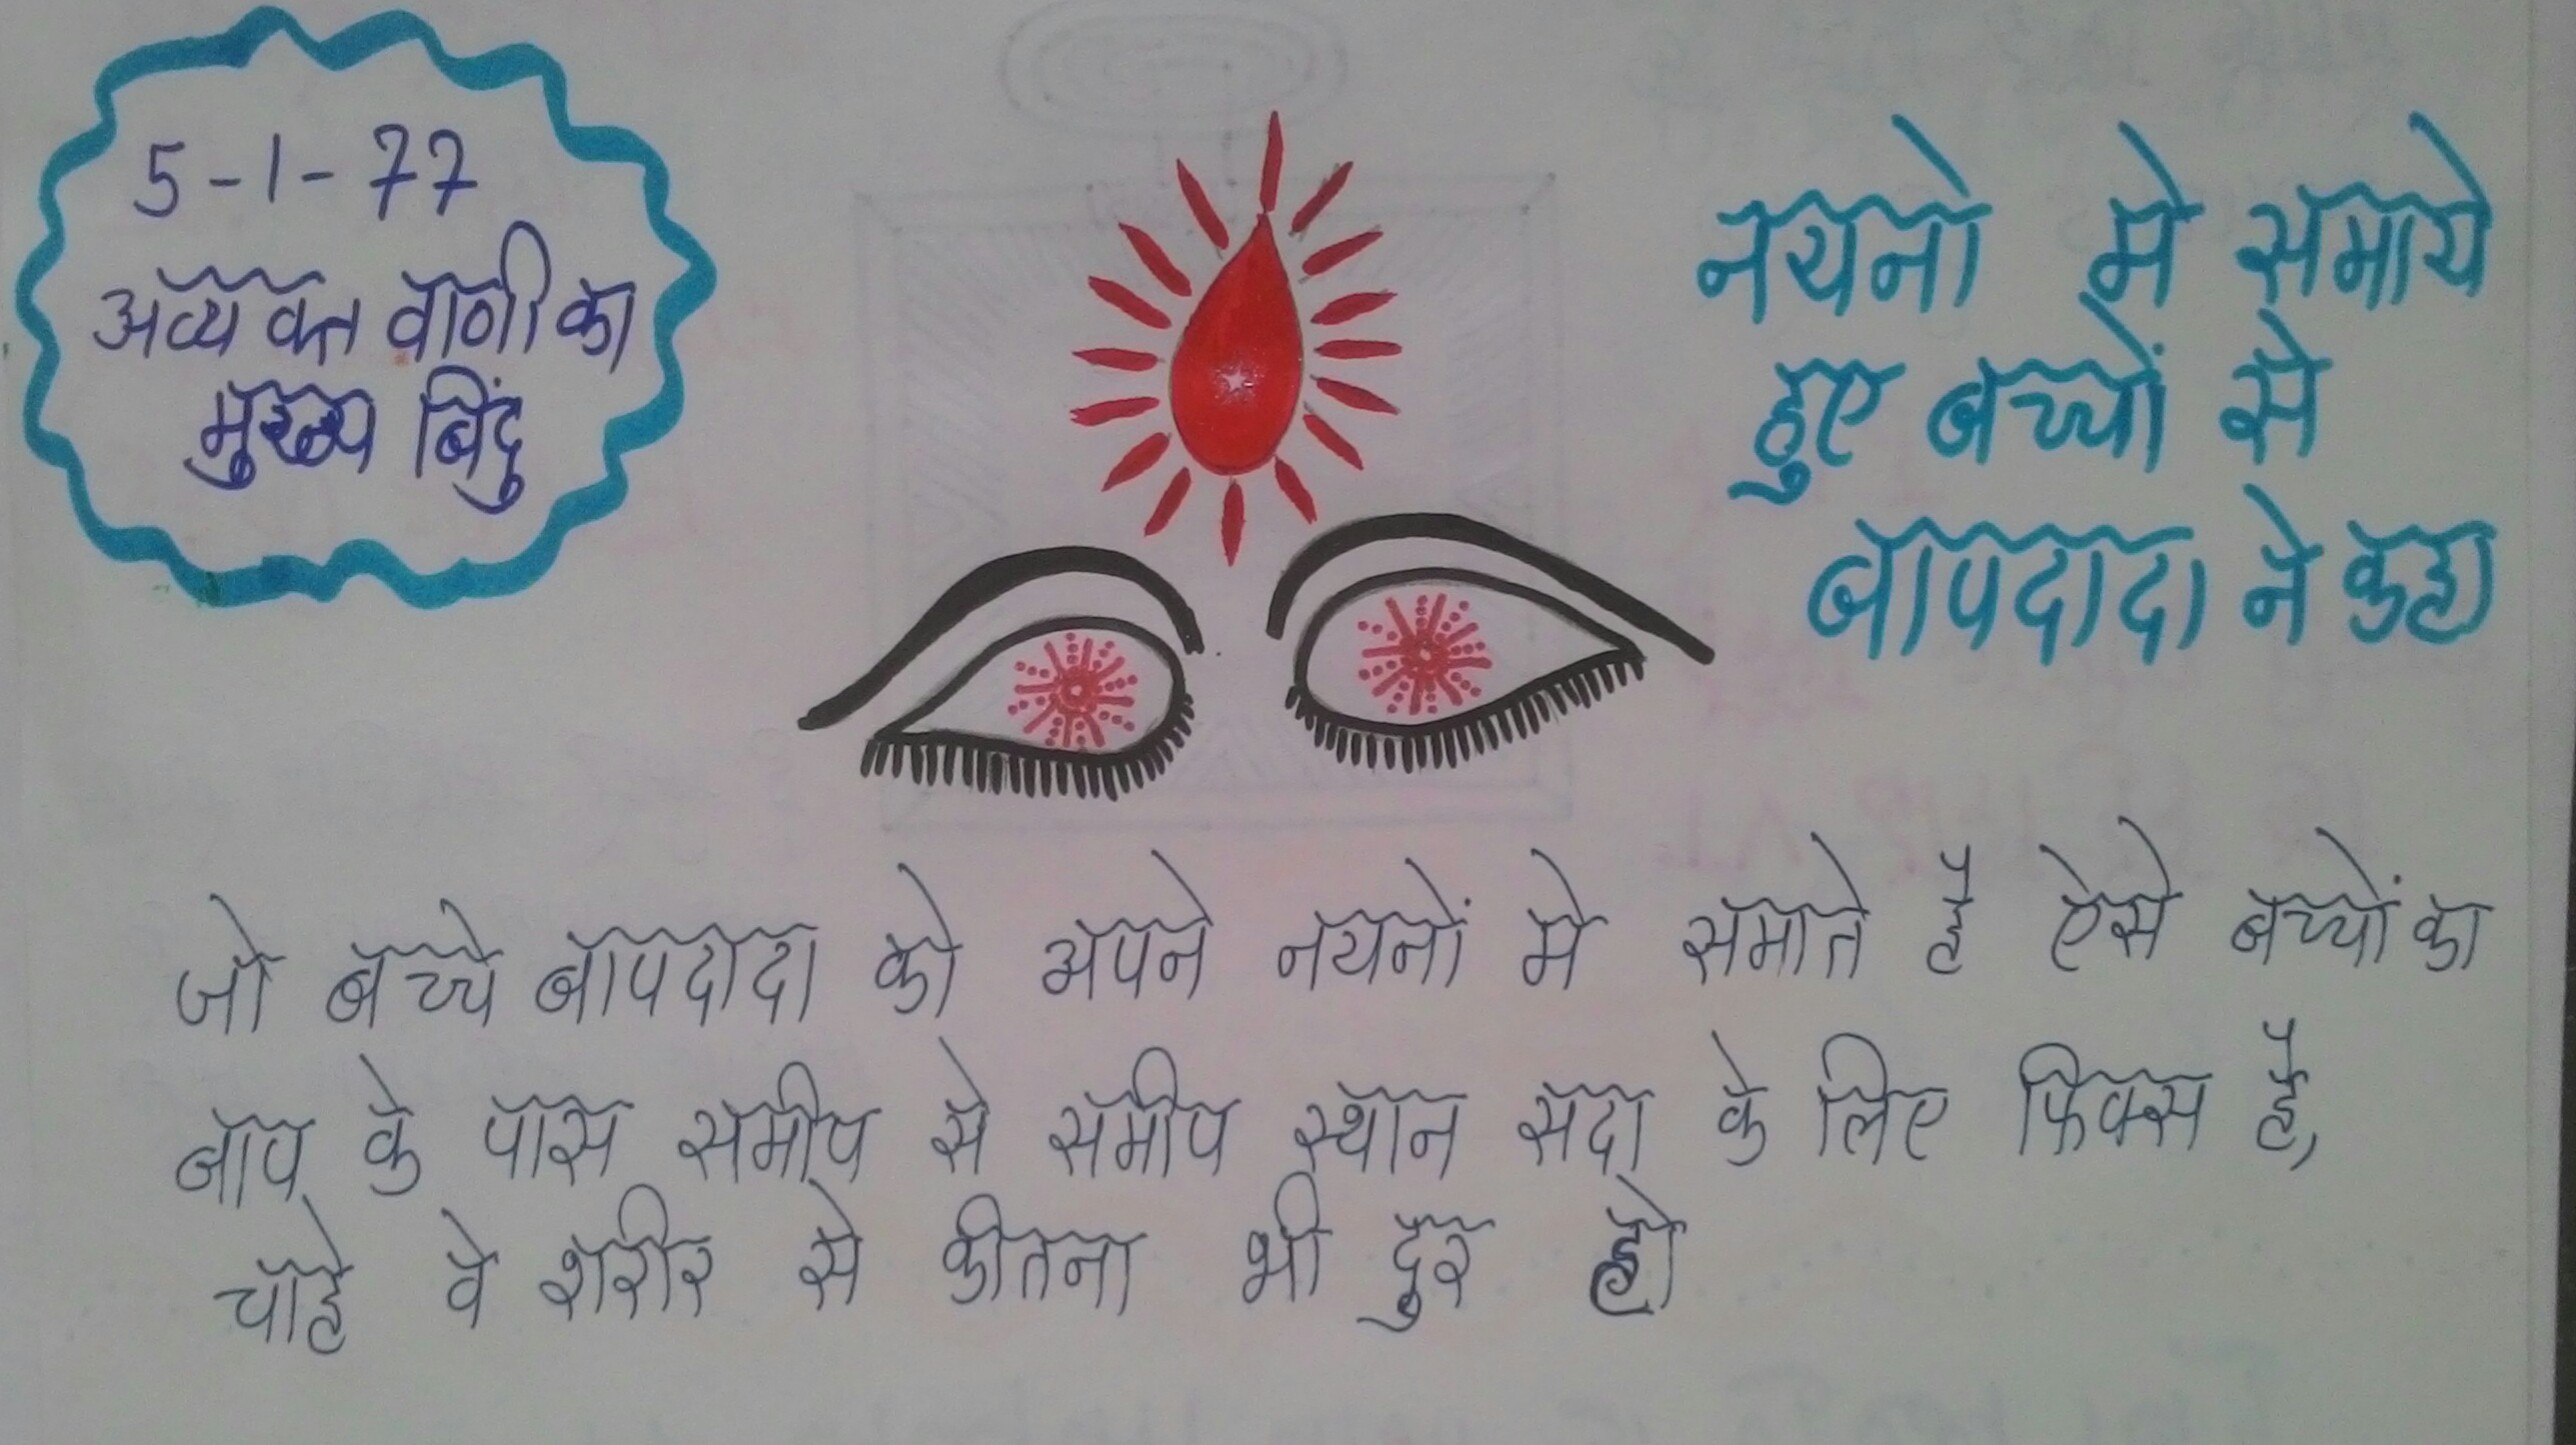 5-1-77
अव्यक्त वाणी का
मुख्य बिंदु
नयनो मे समाये
हुए बच्चों से
बापदादा ने कहा
जो बच्चे बापदादा को अपने नयनों मे समाते है ऐसे बच्चों का
बाप के पास समीप से समीप स्थान सदा के लिए फिक्स है,
चाहे वे शरीर से कीतना भी दुर हो